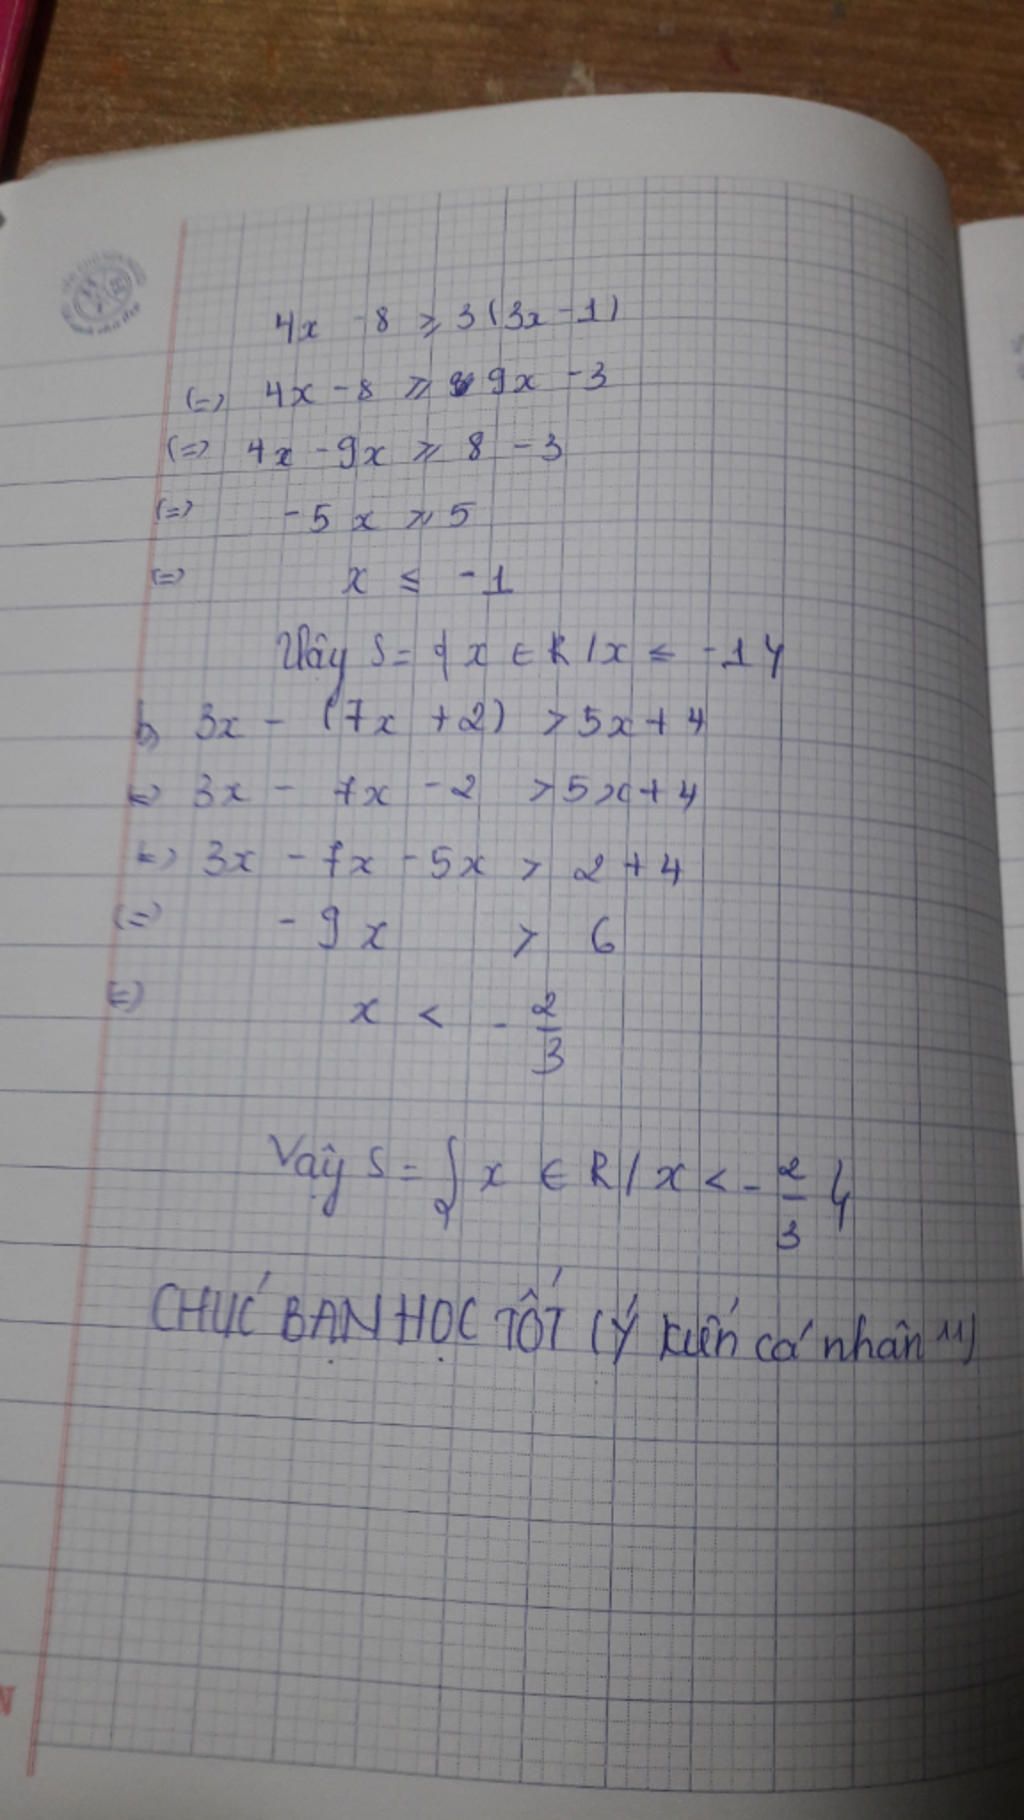 4x - 8 ≥ 3(3x - 1)
(=) 4x - 8 ≥ 9x - 3
(=) 4x - 9x ≥ 8 - 3
(=) -5x ≥ 5
(=) x ≤ -1
Vây S = { x ∈ R / x ≤ -1 }
b, 3x - (7x + 2) > 5x + 4
(=) 3x - 7x - 2 > 5x + 4
(=) 3x - 7x - 5x > 2 + 4
(=) - 9x > 6
(=) x < - 2/3
Vậy S = { x ∈ R / x < - 2/3 }
CHÚC BẠN HỌC TỐT (Ý kiến cá nhân ^^)
N